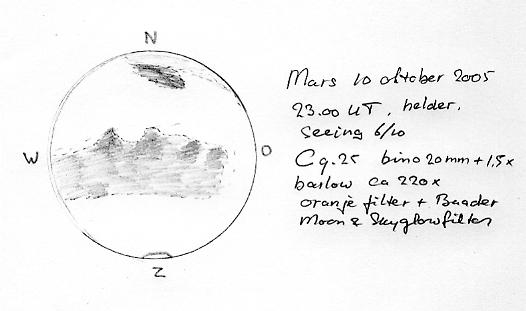 N
W
O
Z
Mars 10 oktober 2005
23.00 UT, helder.
Seeing 6/10
C 9.25 bino 20mm + 1,5x
barlow ca 220x
oranje filter + Baader
Moon & Skyglowfilter